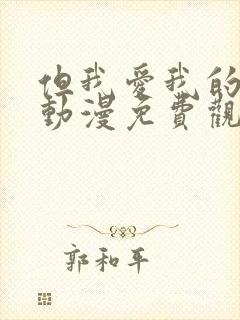 但我愛我的
動漫免費觀
郭和平